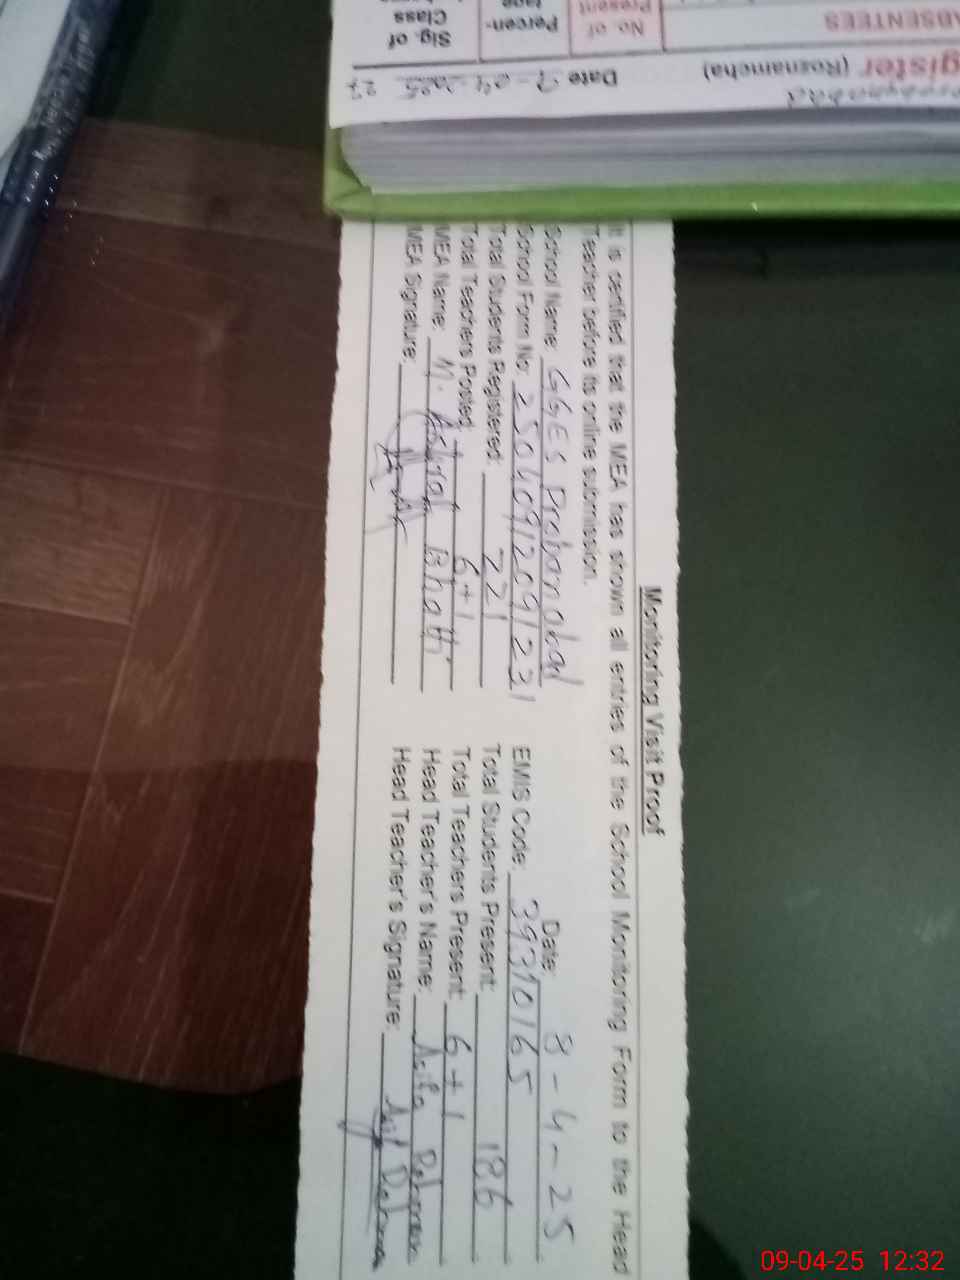 Monitoring Visit Proof
It is certified that the MEA has shown all entries of the School Monitoring Form to the Head
Teacher before its online submission.
School Name: GGES Probanabad Date: 9-4-25
School Form No: 250409/209/231 EMIS Code: 39310165
Total Students Registered: 221 Total Students Present: 186
Total Teachers Posted: 6+1 Total Teachers Present: 6+1
MEA Name: M. Ashraf Bhatti Head Teacher's Name: Asifa Rehman
MEA Signature: Head Teacher's Signature:
gister (Roznamcha) Date 9-04-2025
ABSENTEES No. of Present Percen- tage Sig. of Class
09-04-25 12:32